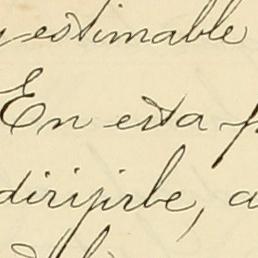 y estimable
En esta f
dirijirle, a